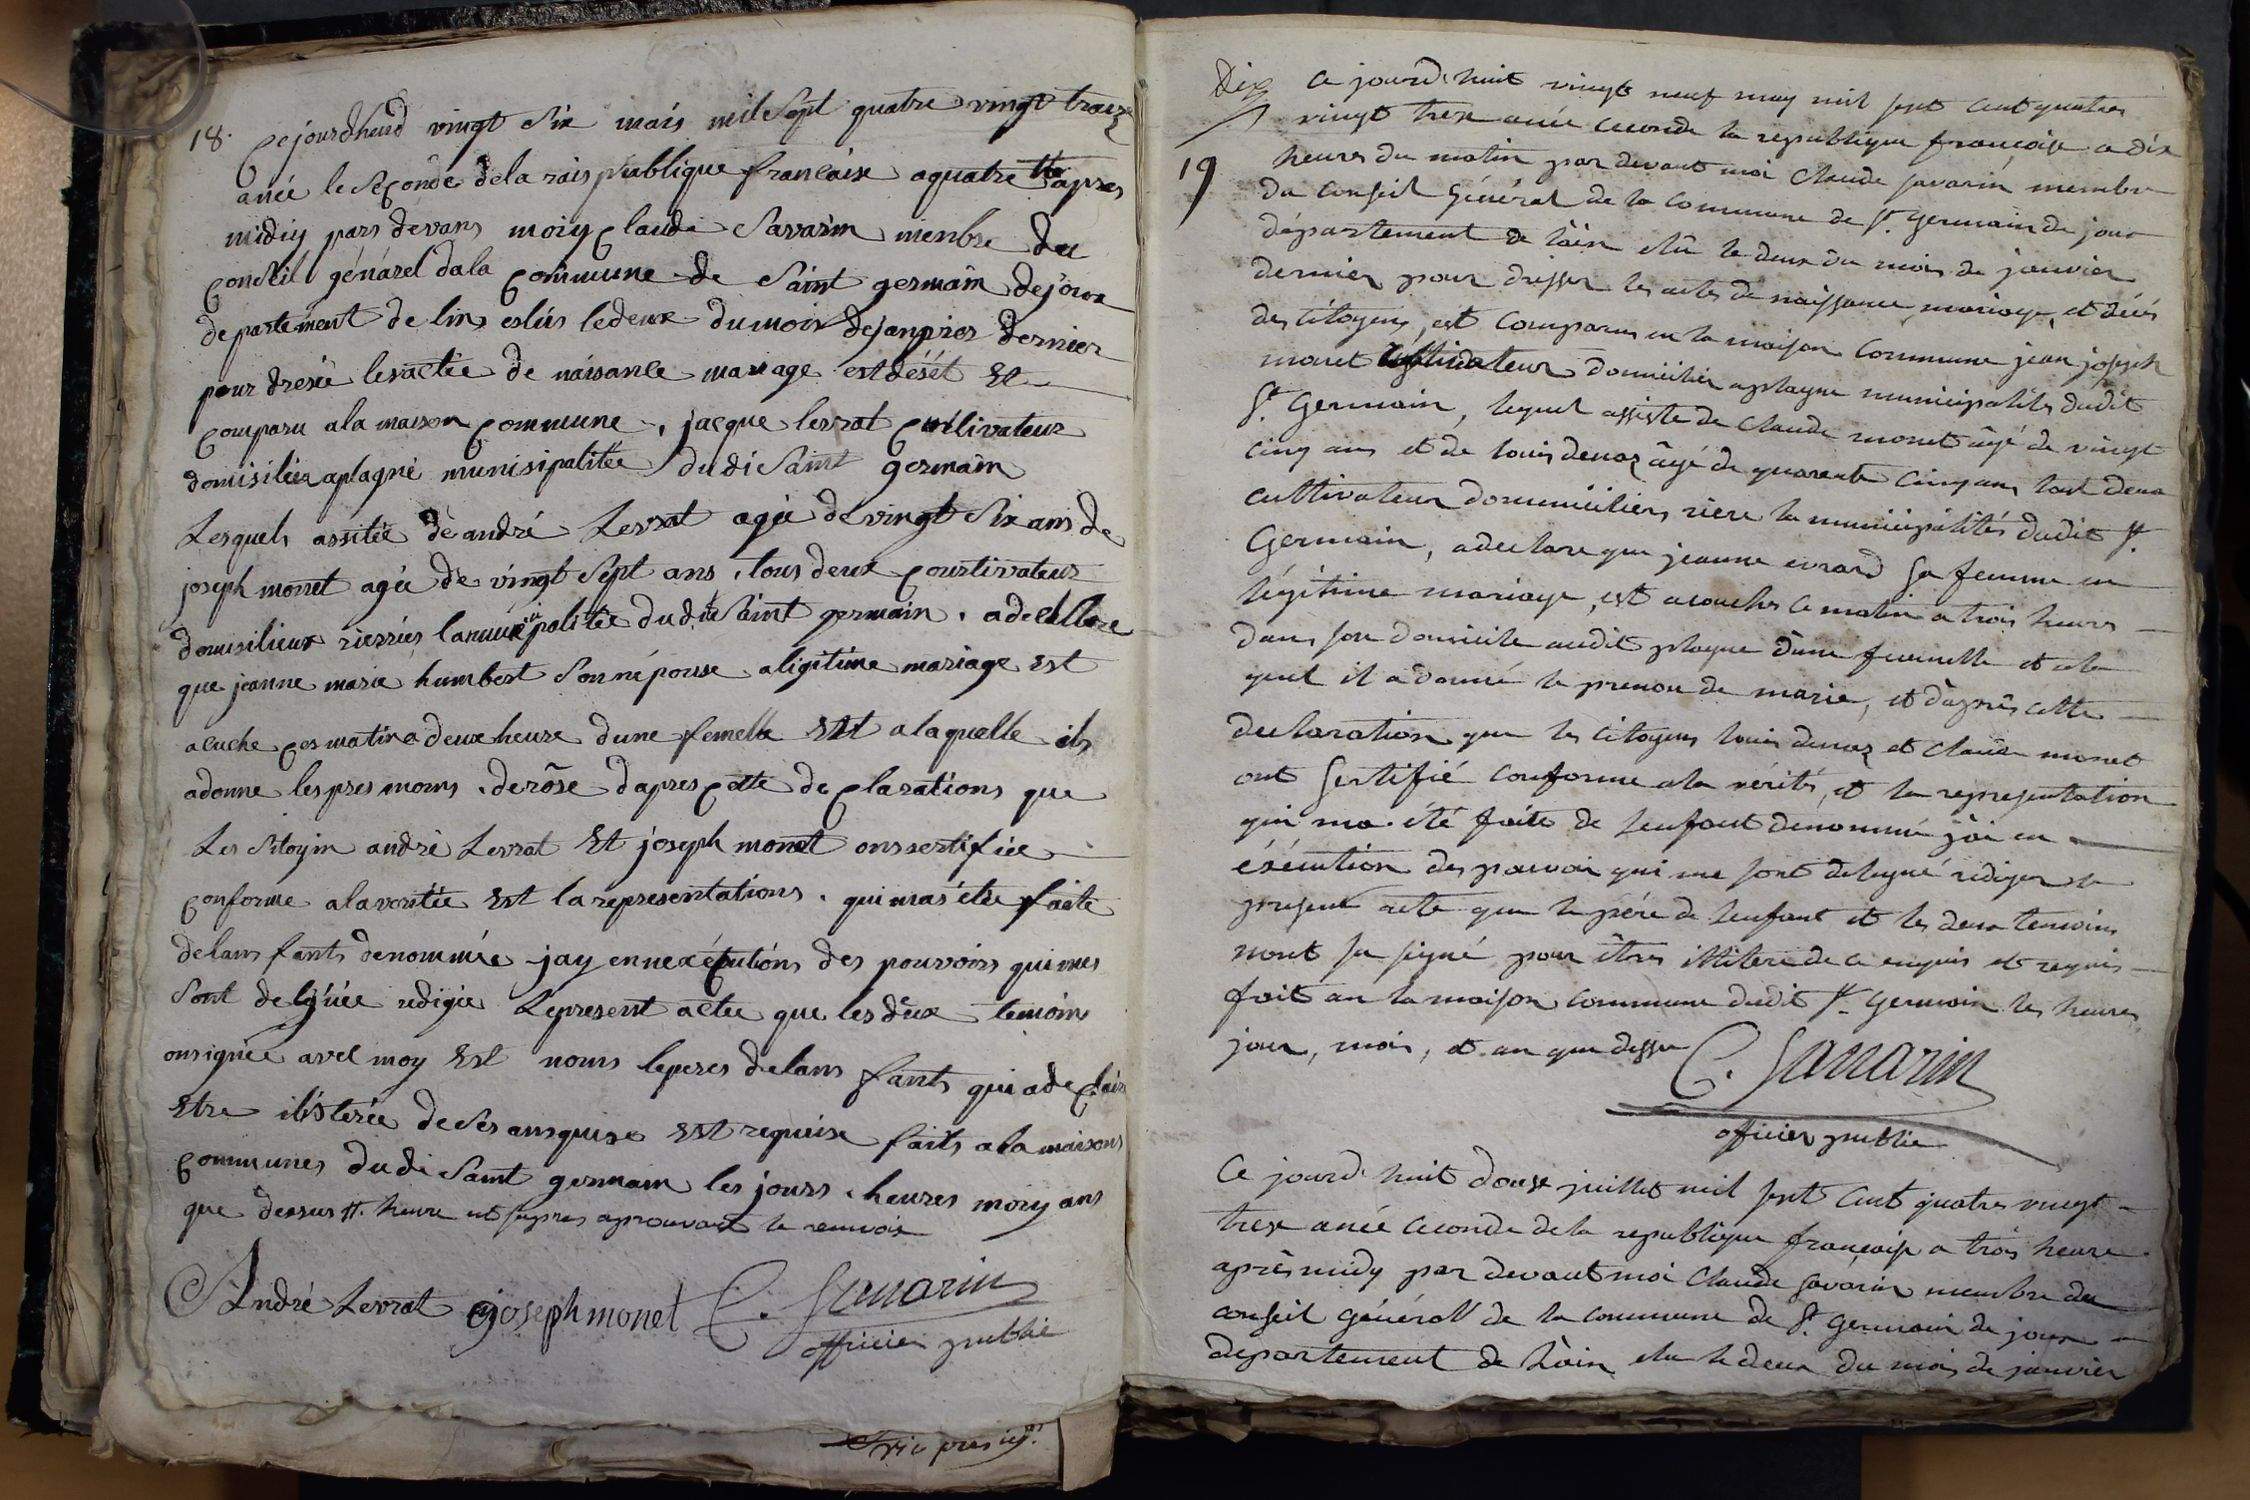 18.
Cejourdhuid vingt Six mais mil Sept quatre vingt traeze
aneé le Seconde dela raispublique francaise aquatre hre apres
midiy pars devans moiy Claude Savarin menbre du
Conseil génárel dala Commune de Saint germain dejoux
departement de lin eslús ledeux dumois dejanpier dernier
pour dreseé lesactée de náisance mariage est déset Et
Comparu ala maison Commune, jacque levrat Cultivateur
domisiliéz aplagne munisipalitée dudi Saint germain
Lesquels assitée de andré Levrat agée de vingt Six ans de
joseph monet agée de vingt Sept ans, tous deux Courtivateur
domisilieux rierres lamunicipalitée dudit Saint germain. adecllare
que jeanne maria humbert Sonnépouse aligitime mariage est
acuche Ces matin a deux heure dune femelle Est alaquelle ils
adonne lespres moms de rôse dapres Cette de Clarations que
Les Sitoyin andré Levrat Et joseph monet ons sertifiée
Conforme alavoritée Est larepresentations. qui mas étée faite
delans fants denommée jay ennexécutións des pouvoirs quimes
Sont delguée redigée Lepresent actee que les deux temoins
onsignée avel moy Est noms leperes delans fants qui ade Clair
Etre ilisterée deses ansquise Est requise faits ala maisons
Communes dudi Saint germain les jours. heures moiy ans
que dessus #. heure et sepres aprouvant le renvois
André Levrat joseph monet C. Savarin
officier public
Dix
19
Ce jourd'huit vingt neuf may mil sept cent quatres
vingt trese anée ceconde la republique françoise a dix
heures du matin par devant moi Claude savarin membre
du conseil général de la commune de St. germain de joux
département de làin elû le deux du mois de janvier
dernier pour drisser les actes de naissance, mariage, et décés
des citoyens, est comparus en la maison commune jean joseph
monet cultivateur domicilier a plagne municipalités dudit
St. Germain, lequel assiste de Claude monet âgé de vingt
cinq ans et de louis denaz âgé de quarente cinq ans tout deux
cultivateur doumiciliers riere la municipalités dudit St.
Germain, a declare que jeanne evrard sa femme en
légitime mariage, est acouches ce matin a trois heures
dans son domicile audit plagne dune fumelle et ala
quel il a donné le prenom de marie, et daprès cette
declaration que les citoyens louis denaz et claude monet
ont sertifié conforme ala vérités, et la representation
qui ma été faite de lenfant denommé jài en
éxécution des pouvoir qui me sont delegué rédiger le
present acte que le père de lenfant et les deux temoins
nont su signé pour êtres illitere de ce enquis et requis
fait an la maison commune dudit St. Germain les heures,
jour, mois, et an que dessu
C. Savarin
officier public
Ce jourd'huit douse juillet mil sept cent quatres vingt
trese anée ceconde de la republique françoise a trois heure
après midy par devant moi Claude savarin membre du
conseil générall de la commune de St. Germain de joux
departement de làin elu le deux du mois de janvier